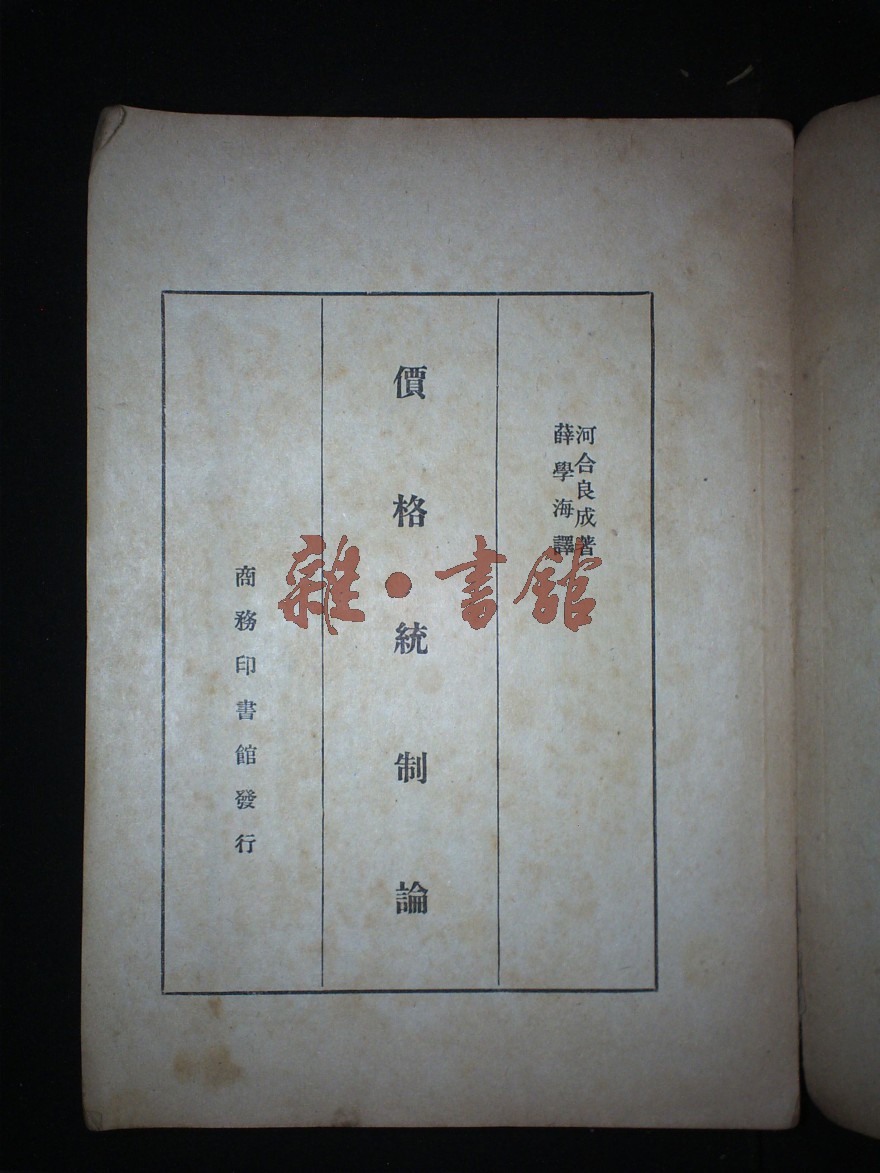 河合良成著
薛學海譯
價格統制論
商務印書館發行
雜·書館